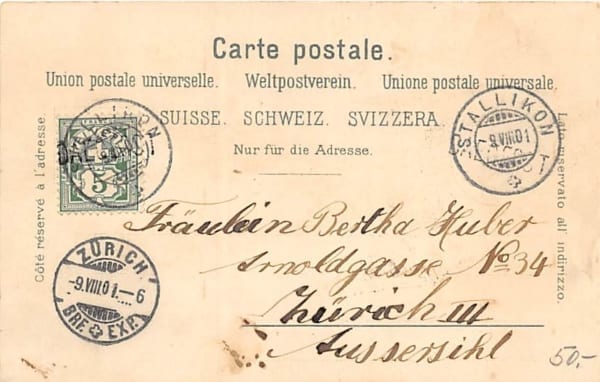 Carte postale.
Union postale universelle. Weltpostverein. Unione postale universale.
SUISSE. SCHWEIZ. SVIZZERA.
Nur für die Adresse.
Côté réservé à l'adresse.
Lato riservato all' indirizzo.
5
STALLIKON
9.VIII.01
ZÜRICH
-9.VIII.01.-6
BRE EXP.
Fräulein Bertha Huber
Arnoldgasse No 34
Zürich III
Aussersihl
50.-